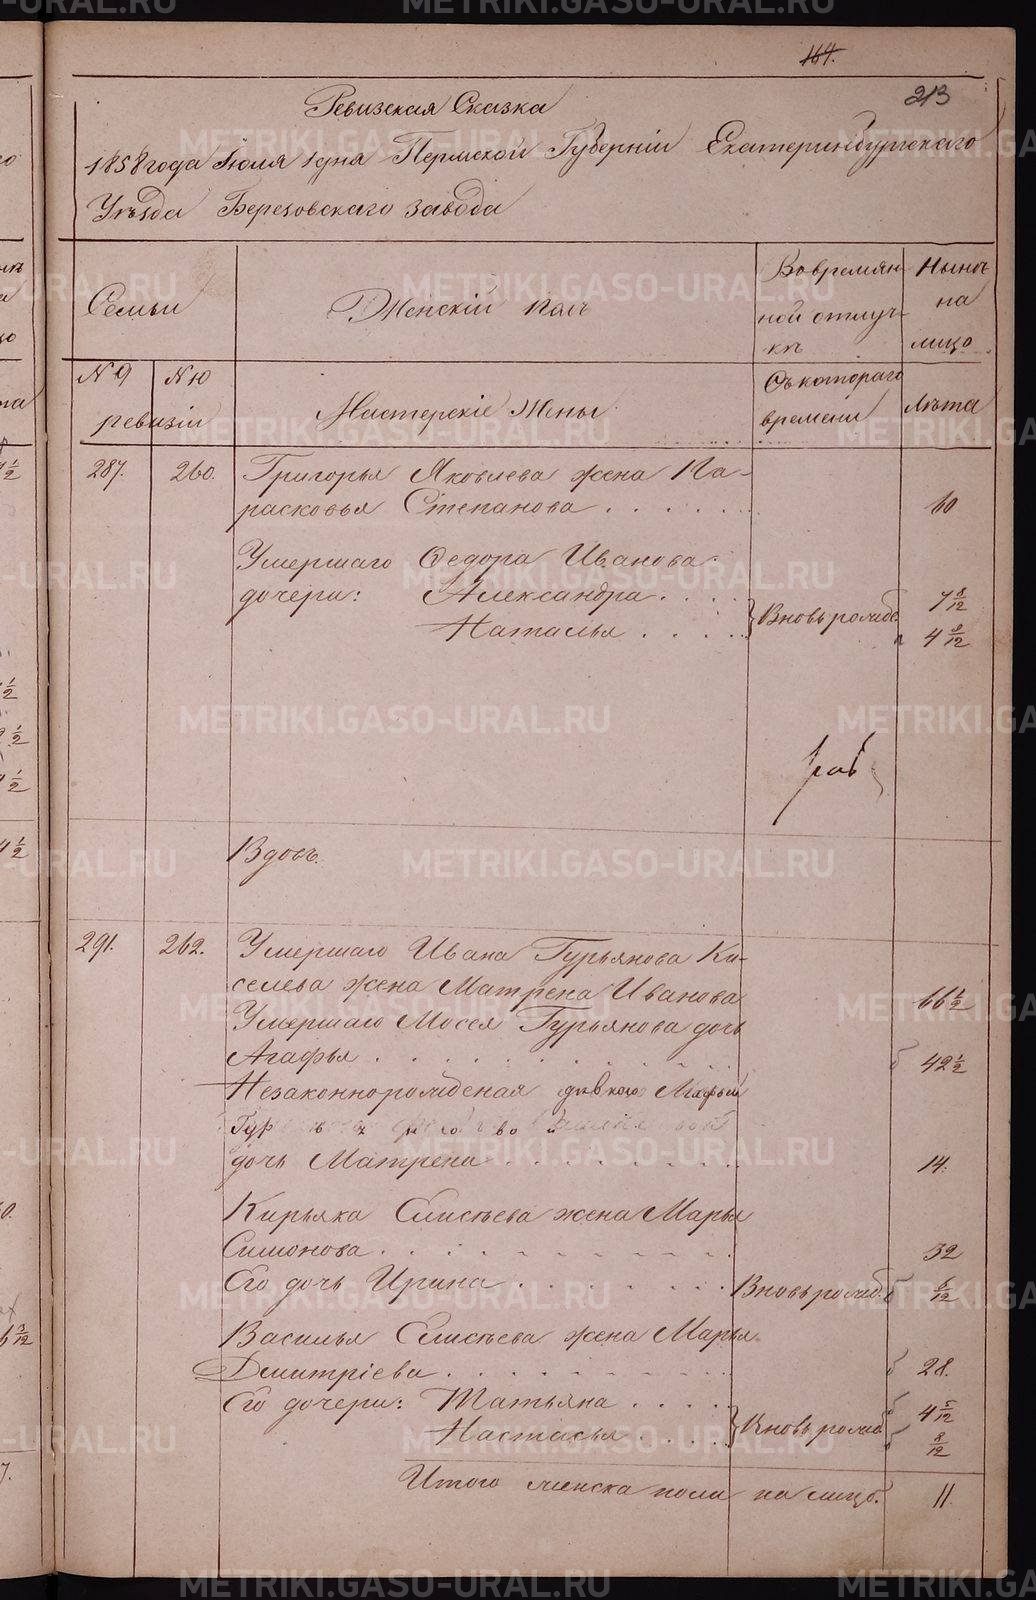 164.
213
Ревизская Сказка
1858 года Іюля 1 дня Пермской Губерніи Екатеринбургскаго
Уѣзда Березовскаго завода
Семьи
Женскій полъ
Во времян-
ной отлуч-
кѣ
Нынѣ
на
лицо
№ 9
№ 10
ревизіи
Мастерскіе Жены
Съ котораго
времени
Лѣта
287. 260. Григорья Яковлева жена Па-
расковья Степанова . . . . . . 60
Умершаго Ѳедора Иванова
дочери: Александра . . . . 7 8/12
Вновь рожд.
Наталья . . . . 4 8/12
Вдовъ.
291. 262. Умершаго Ивана Гурьянова Ки-
селева жена Матрена Иванова 66 1/2
Умершаго Мосея Гурьянова дочь
Агафья . . . . . . . . . . б 42 1/2
Незаконнорожденая дѣвкою
дочь Матрена . . . . . . . . 14.
Кирьяка Елисѣева жена Марья
Симонова . . . . . . . . . . 32
Его дочь Ирина . . . . . . . Вновь рожд. б 6/12
Василья Елисѣева жена Марья
Дмитріева . . . . . . . . . б 28.
Его дочери: Татьяна . . . . б 4 5/12
Вновь рожд.
Настасья . . . . б 8/12
Итого женска пола на лицо. 11.
METRIKI.GASO-URAL.RU